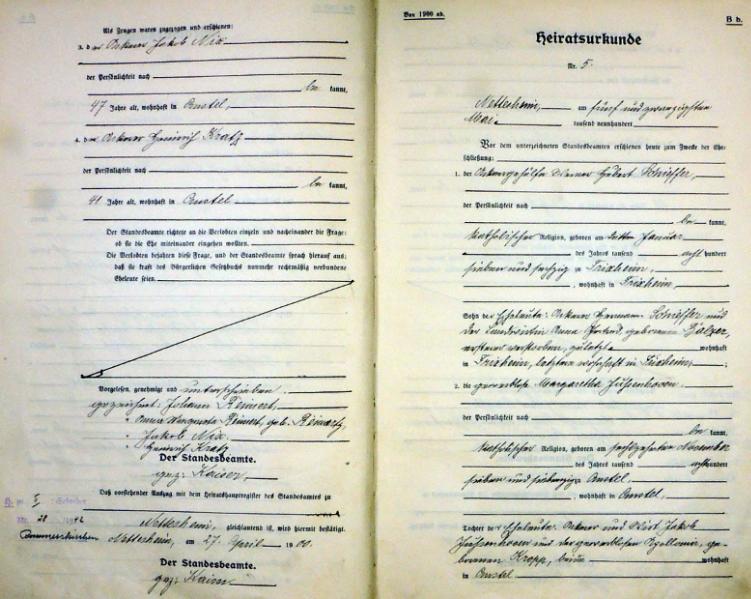 Als Zeugen waren zugezogen und erschienen:
3. der Ackerer Jakob Nix
der Persönlichkeit nach
be kannt,
47 Jahre alt, wohnhaft in Anstel,
4. der Ackerer Heinrich Kratz
der Persönlichkeit nach
be kannt,
41 Jahre alt, wohnhaft in Anstel,
Der Standesbeamte richtete an die Verlobten einzeln und nacheinander die Frage:
ob sie die Ehe miteinander eingehen wollten.
Die Verlobten bejahten diese Frage, und der Standesbeamte sprach hierauf aus:
daß sie kraft des Bürgerlichen Gesetzbuchs nunmehr rechtmäßig verbundene
Eheleute seien.
Vorgelesen, genehmigt und unterschrieben.
gezeichnet: Johann Reinert,
" Anna Reinert, geb.
" Jakob Nix
" Heinrich Kratz
Der Standesbeamte.
gez: Kaiser,
Daß vorstehender Auszug mit dem Heiratshauptregister des Standesamts zu
Nettesheim, gleichlautend ist, wird hiermit bestätigt.
Nettesheim, am 27. April 1900.
Der Standesbeamte.
gez: Kaiser
I
28 1942
Rommerskirchen
Vom 1900 ab.
B b.
Heiratsurkunde
Nr. 5.
Nettesheim, am fünf und zwanzigsten
Mai tausend neunhundert
Vor dem unterzeichneten Standesbeamten erschienen heute zum Zwecke der Ehe-
schließung:
1. der Ackergehülfe Werner Hubert Schieffer,
der Persönlichkeit nach
be kannt,
katholischer Religion, geboren am Januar
des Jahres tausend acht hundert
sieben und sechzig in Frixheim,
, wohnhaft in Frixheim,
Sohn der Eheleute: Ackerer Hermann Schieffer und
der Anna Gertrud, geborenen Balzer,
ersterer verstorben, zuletzt wohnhaft
in Frixheim, letztere wohnhaft in Frixheim, ;
2. die gewerblose Margaretha Hüsenhoven
der Persönlichkeit nach
be kannt,
katholischer Religion, geboren am sechszehnten November
des Jahres tausend achthundert
sieben und siebenzig Anstel,
, wohnhaft in Anstel,
Tochter der Eheleute: Ackerer und Wirt Jakob
Hüsenhoven und der gewerblosen Apollonia, ge-
borenen Kropp, beide wohnhaft
in Anstel